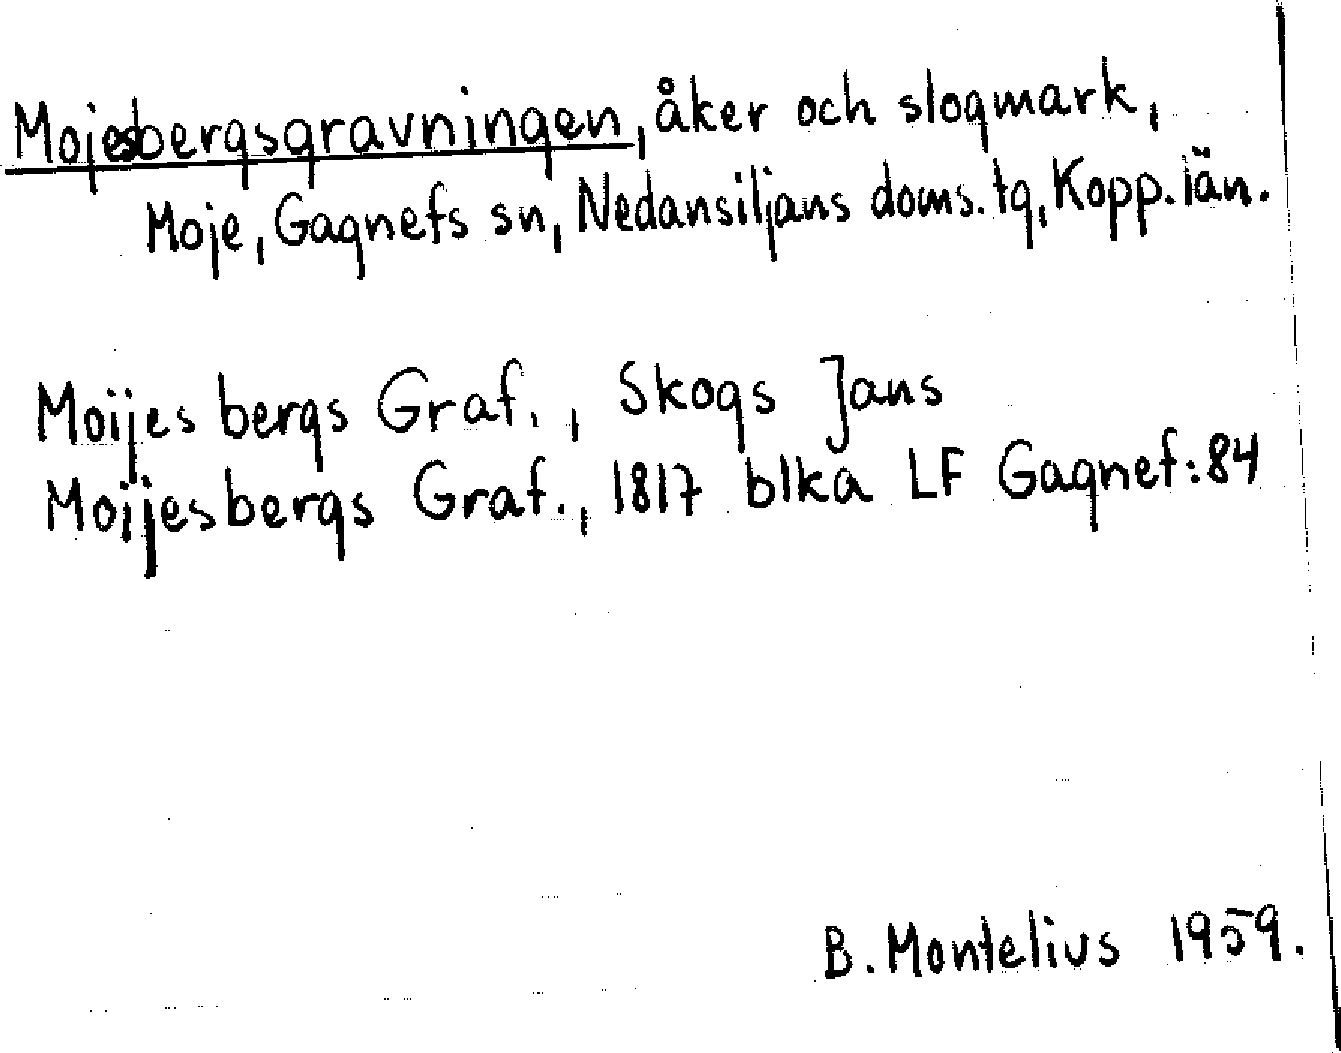 Mojesbergsgravningen, åker och slogmark,
Moje, Gagnefs sn, Nedansiljans doms. tg, Kopp. län.
Moijes bergs Graf., Skogs Jans
Moijesbergs Graf., 1817 blka LF Gagnef:84
B. Montelius 1959.